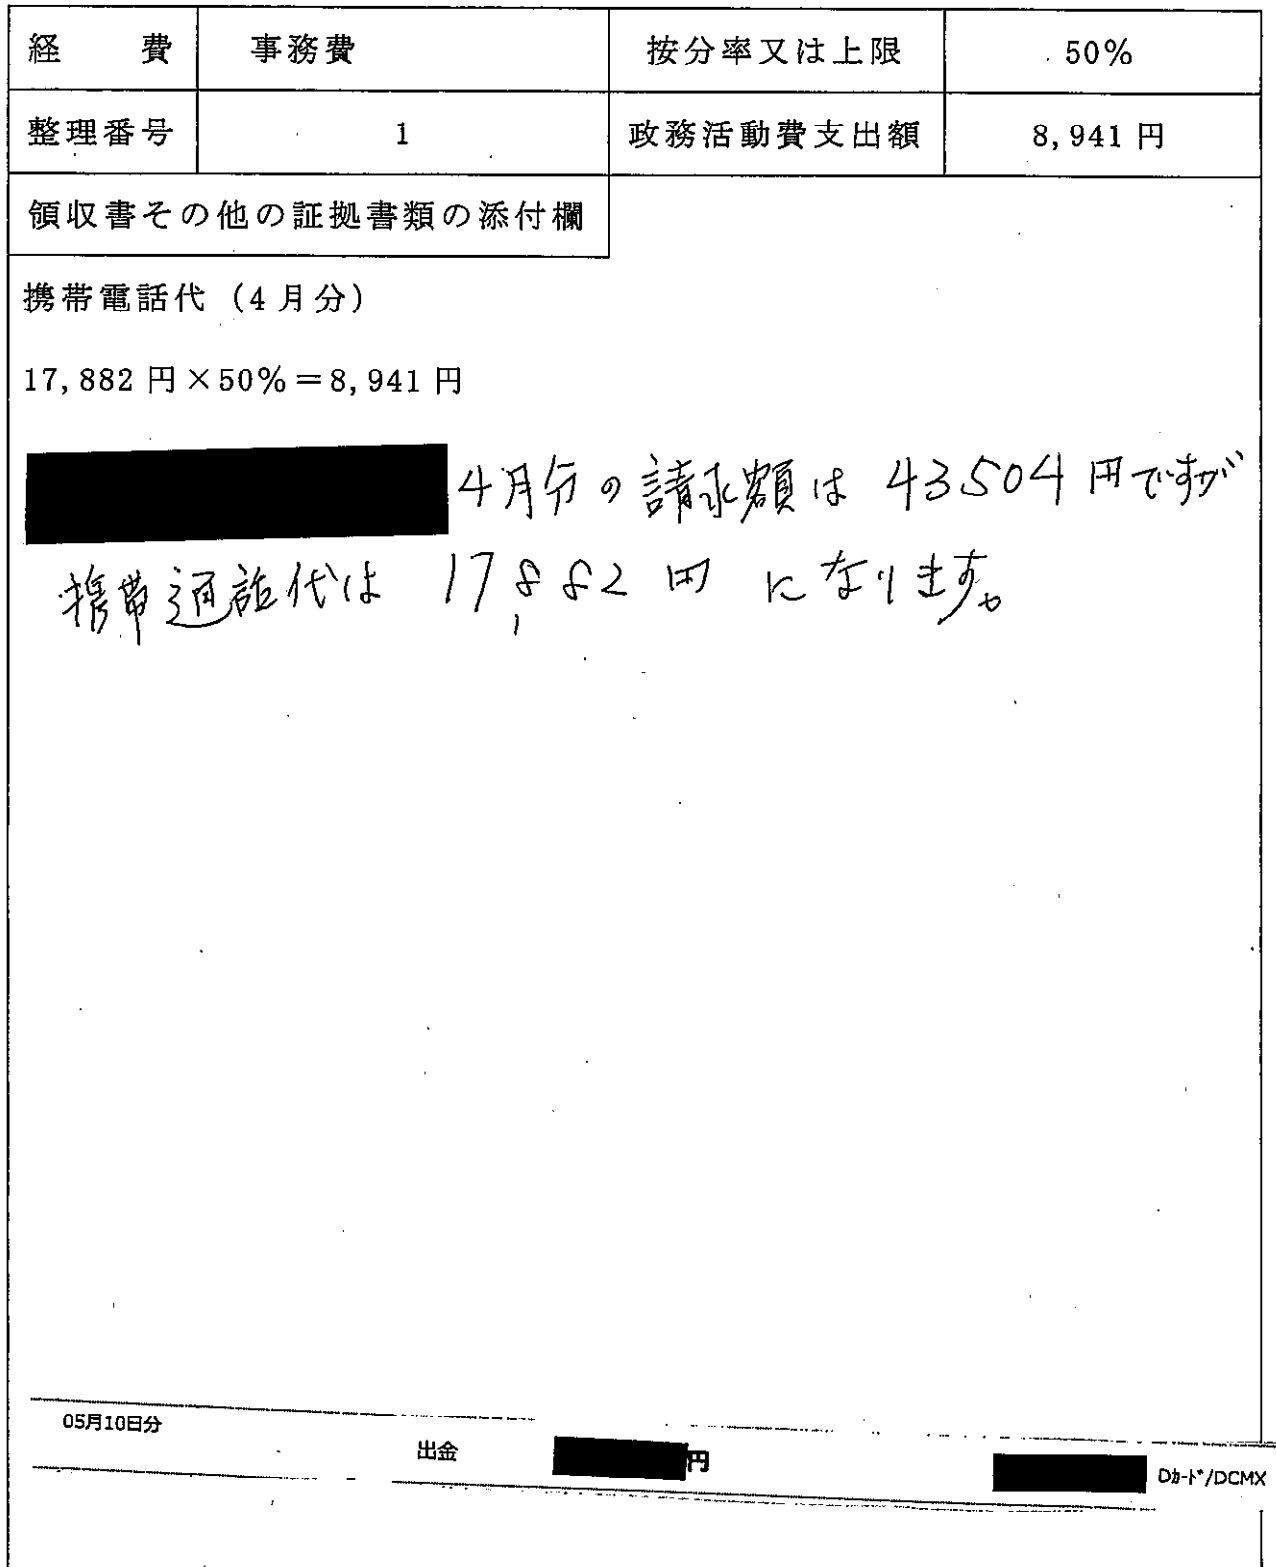 経 費 事務費 按分率又は上限 50%
整理番号 1 政務活動費支出額 8,941 円
領収書その他の証拠書類の添付欄
携帯電話代（4月分）
17,882 円×50%＝8,941 円
4月分の請求額は 43504円ですが
携帯通話代は 17,882 円 になります。
05月10日分
出金 円 Dｶｰﾄﾞ/DCMX